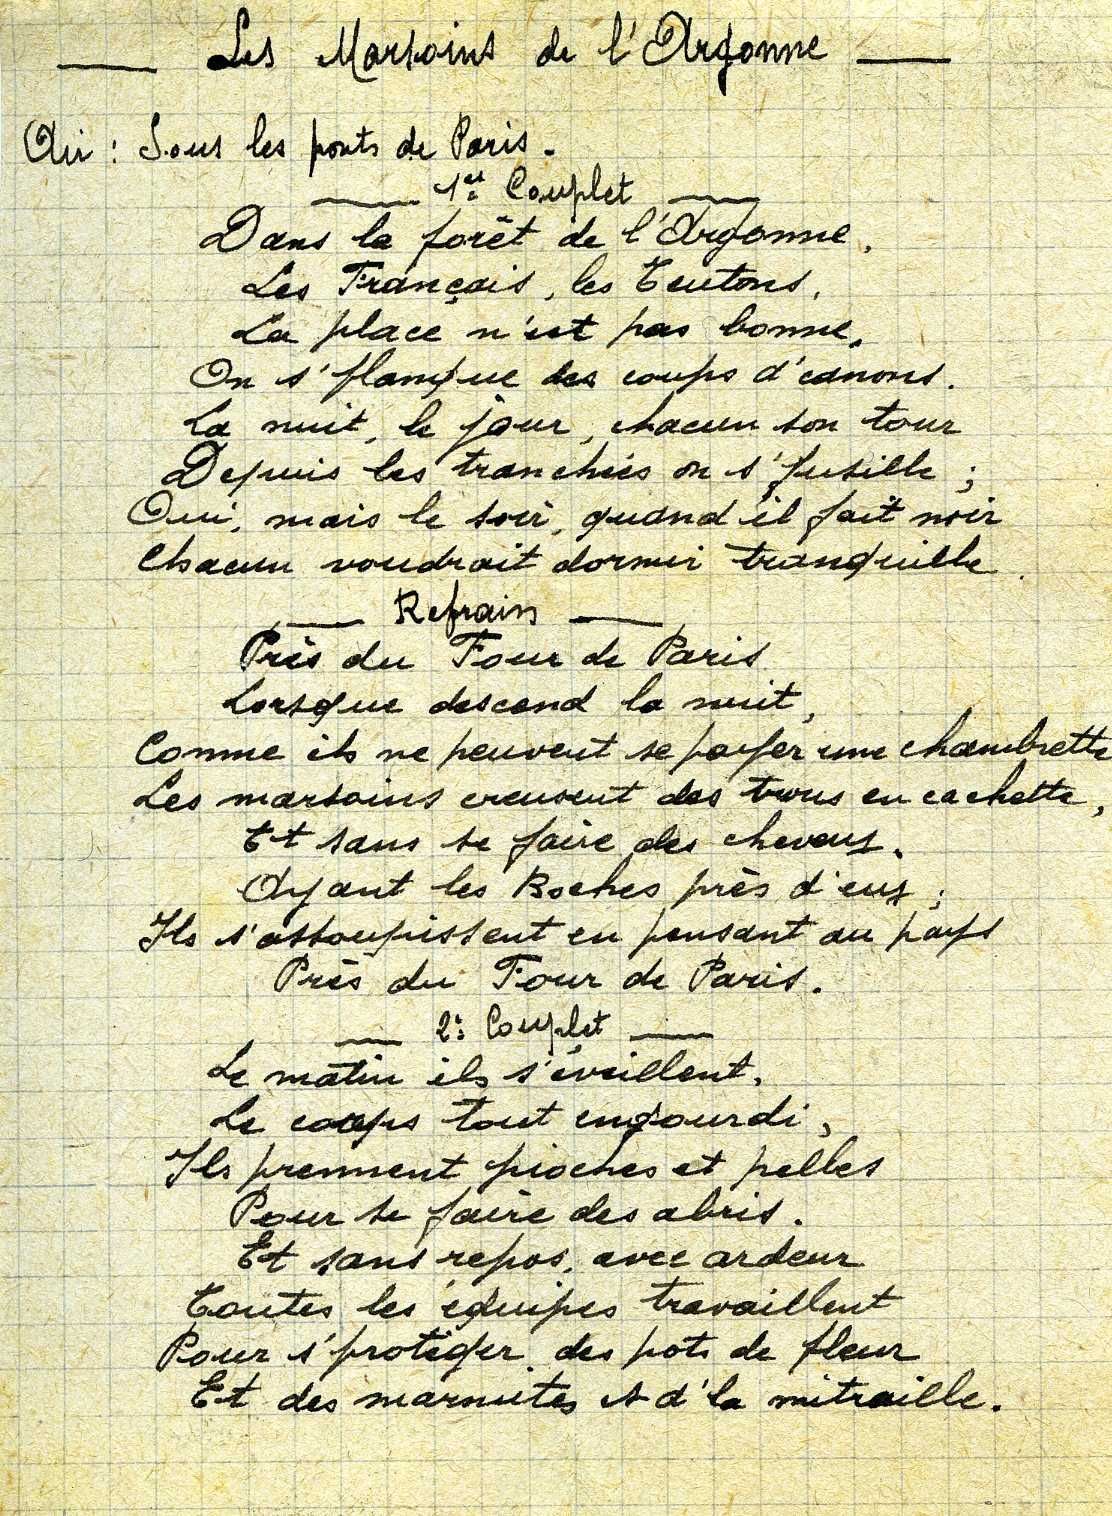 Les Marsoins de l'Argonne
Air : Sous les ponts de Paris.
1er Couplet
Dans la forêt de l'Argonne,
Les Français, les Teutons,
La place n'est pas bonne,
On s'flanque des coups d'canons.
La nuit, le jour, chacun son tour
Depuis les tranchées on s'fusille ;
Oui, mais le soir, quand il fait noir
Chacun voudrait dormir tranquille.
Refrain
Près du Four de Paris
Lorsque descend la nuit,
Comme ils ne peuvent se payer une chambrette
Les marsoins creusent des trous en cachette,
Et sans se faire des cheveux,
Ayant les Boches près d'eux ;
Ils s'assoupissent en pensant au pays
Près du Four de Paris.
2e Couplet
Le matin ils s'éveillent,
Le corps tout engourdi,
Ils prennent pioches et pelles
Pour se faire des abris.
Et sans repos, avec ardeur
Toutes les équipes travaillent
Pour s'protéger des pots de fleur
Et des marmites et d'la mitraille.